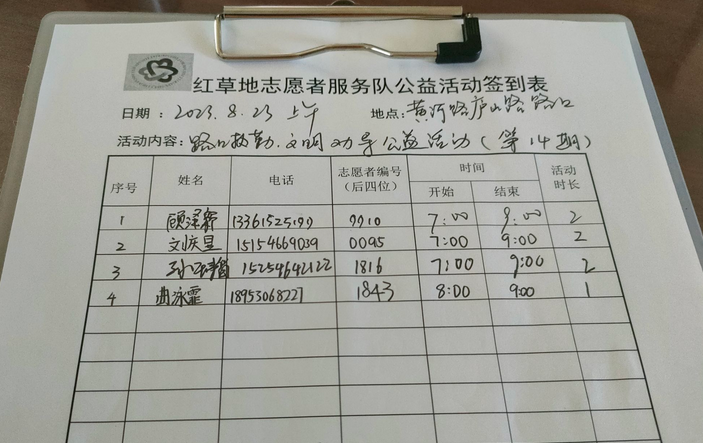 红草地志愿者服务队公益活动签到表
日期：2023.8.23 上午 地点：黄河路庐山路路口
活动内容：路口执勤.文明劝导公益活动（第14期）
序号 姓名 电话 志愿者编号（后四位） 时间 开始 结束 活动时长
1 顾泽霖 13361525199 7:00 9:00 2
2 刘庆星 15154669039 0095 7:00 9:00 2
3 15254642122 1816 7:00 9:00 2
4 曲泳霏 18953068227 1843 8:00 9:00 1